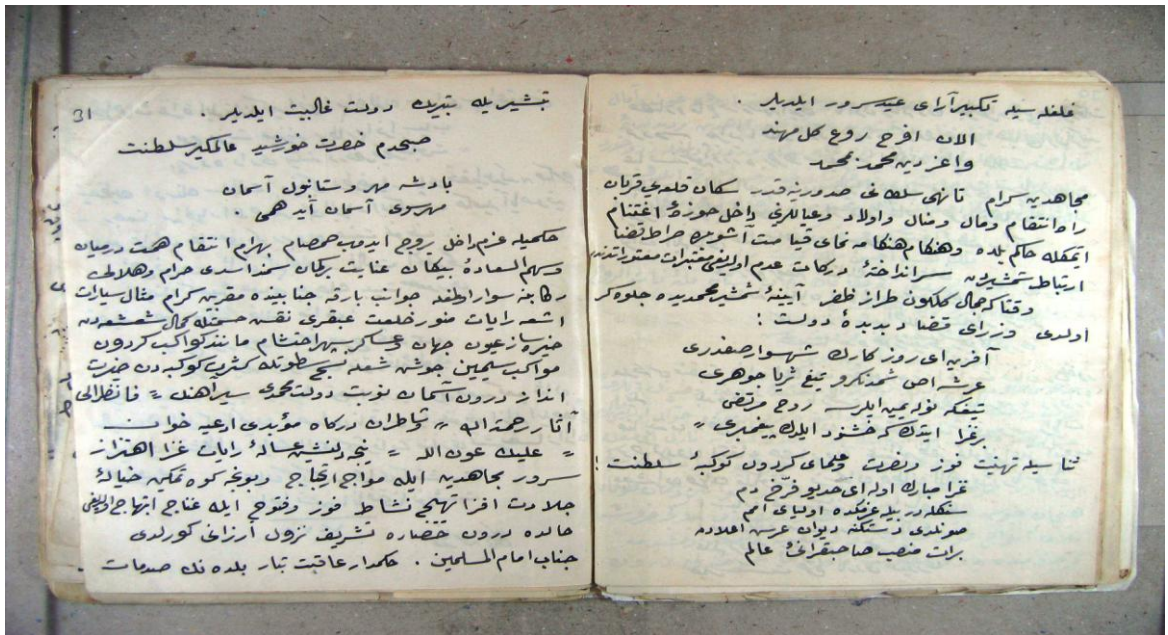 غلغله سيله تكبير آراى عيد سرور ايلديلر .
الان افرح روع كل مهند
واعز دين محمد بمحمد
مجاهدين كرام تا نهى سلطانى صدورينه قدر سكان قلعه يى قربان
راه انتقام ومال ومنال واولاد وعياللرينى داخل حوزۀ اغتنام
ايتمكله حاكم بلده وهنكام هنكامه نماى قيامت آشوبك صراط قضا
ارتباط شمشيردن سر انداختۀ دركات عدم اولديغى معتبرات
وقتاكه جمال كلكون طراز ظفر آيينۀ شمشير محمديده جلوه كر
اولدى وزراى قضا دبدبۀ دولت :
آفرين اى روزكارك شهسوار صفدرى
عرشه آص شمدنكرو تيغ ثريا جوهرى
تيغكه نوله يمين ايلرسه روح مرتضى
بر غزا ايتدك كه خشنود ايلدك پيغمبرى "
ثنا سيله تهنيت فوز ونصرت وعلماى كردون كوكبۀ سلطنت :
غزا مبارك اوله اى خديو فرخ دم
سنكله در بيله غزفكده اولياى امم
صونلدى دستكه ديوان عرش اعلادن
برات منصب صاحبقرانئ عالم
31
تبشيريله تبريك دولت غالبيت ايلديلر .
صبحدم حضرت خورشيد عالمكير سلطنت
پادشه مهر وستانول آسمان
مهرسوى آسمان آيد همى .
حكميله عزم داخل بروج ايدوب صمصام بهرام انتقام همت درميان
وسهم السعادۀ پيكان عنايت تركان سمند اسدى حرام وهلالى
ركابنه سوار لطفله جوانب بارقه جنابينده مقربين كرام مثال سيارات
اشعه رايات منور خلعت عبقرى نفس كمال شعشعه دن
خيره ساز عيون جهان عسكر سپهر احتشام مانند كواكب كردون
مواكب سيمين جوشن شعله نسج سطوتله كثرت كوكبه دن ضربت
انداز درون آسمان نوبت دولت محمدى سير آهنك = فانظر الى
آثار رحمة الله = خاطران دركاه مؤبدى ادعيه خوان
= عليك عون الله = نشاۀ رايات غزا اهتزاز
سرور مجاهدين ايله مواج ابتهاج وبونجه كوه تمكين
جلادت افزا تهييج نشاط فوز وفتوح ايله ابتهاج اولديغى
حالده درون حصاره تشريف نزول ارزانى كورلدى
جناب امام المسلمين . حكمدار عاقبت تبار بلده نك صدمات